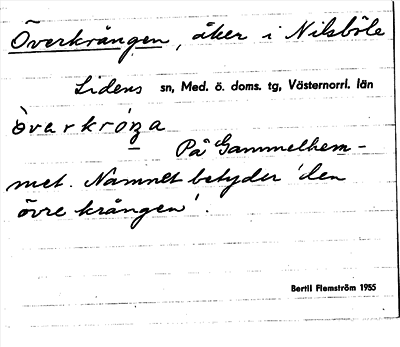 Överkrången, åker i Nilsböle
Lidens sn, Med. ö. doms. tg, Västernorrl. län
På Gammelhem-
met. Namnet betyder 'den
övre krången'.
Bertil Flemström 1955